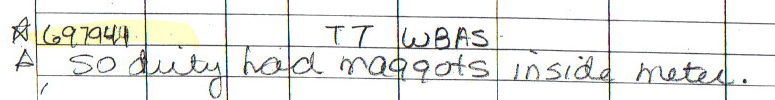 ☆ 697944 TT WBAS
△ so dirty had maggots inside meter.